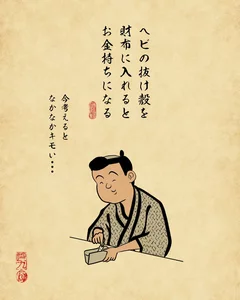 ヘビの抜け殻を
財布に入れると
お金持ちになる
今考えると
なかなかキモい…